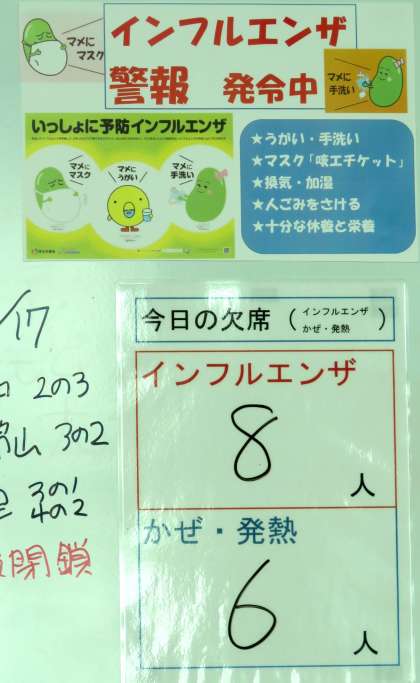 マメに
マスク
インフルエンザ
警報 発令中
マメに
手洗い
いっしょに予防インフルエンザ
マメに
マスク
マメに
うがい
マメに
手洗い
★うがい・手洗い
★マスク「咳エチケット」
★換気・加湿
★人ごみをさける
★十分な休養と栄養
/17
2の3
山 3の2
3の1
4の2
閉鎖
今日の欠席 (インフルエンザ
かぜ・発熱)
インフルエンザ
8人
かぜ・発熱
6人